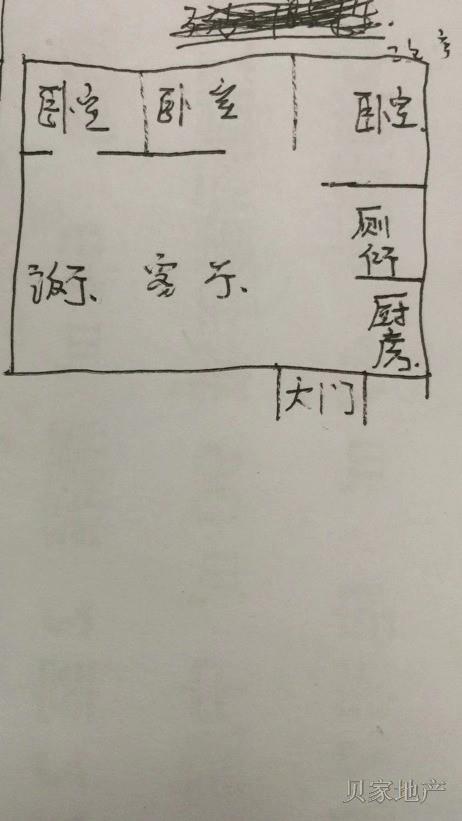 卧室 卧室 卧室
厕所
饭厅 客厅
厨房
大门
贝家地产